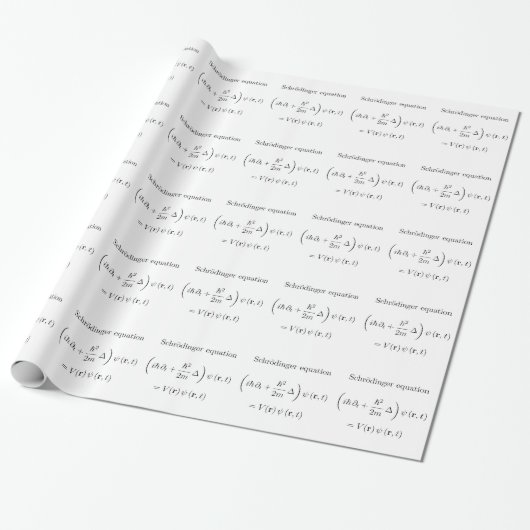 Schrödinger equation
(iℏ∂ₜ + ℏ²/2m Δ) ψ(r, t)
= V(r) ψ(r, t)
Schrödinger equation
(iℏ∂ₜ + ℏ²/2m Δ) ψ(r, t)
= V(r) ψ(r, t)
Schrödinger equation
(iℏ∂ₜ + ℏ²/2m Δ) ψ(r, t)
= V(r) ψ(r, t)
Schrödinger equation
(iℏ∂ₜ + ℏ²/2m Δ) ψ(r, t)
= V(r) ψ(r, t)
Schrödinger equation
(iℏ∂ₜ + ℏ²/2m Δ) ψ(r, t)
= V(r) ψ(r, t)
Schrödinger equation
(iℏ∂ₜ + ℏ²/2m Δ) ψ(r, t)
= V(r) ψ(r, t)
Schrödinger equation
(iℏ∂ₜ + ℏ²/2m Δ) ψ(r, t)
= V(r) ψ(r, t)
Schrödinger equation
(iℏ∂ₜ + ℏ²/2m Δ) ψ(r, t)
= V(r) ψ(r, t)
Schrödinger equation
(iℏ∂ₜ + ℏ²/2m Δ) ψ(r, t)
= V(r) ψ(r, t)
Schrödinger equation
(iℏ∂ₜ + ℏ²/2m Δ) ψ(r, t)
= V(r) ψ(r, t)
Schrödinger equation
(iℏ∂ₜ + ℏ²/2m Δ) ψ(r, t)
= V(r) ψ(r, t)
Schrödinger equation
(iℏ∂ₜ + ℏ²/2m Δ) ψ(r, t)
= V(r) ψ(r, t)
Schrödinger equation
(iℏ∂ₜ + ℏ²/2m Δ) ψ(r, t)
= V(r) ψ(r, t)
Schrödinger equation
(iℏ∂ₜ + ℏ²/2m Δ) ψ(r, t)
= V(r) ψ(r, t)
Schrödinger equation
(iℏ∂ₜ + ℏ²/2m Δ) ψ(r, t)
= V(r) ψ(r, t)
Schrödinger equation
(iℏ∂ₜ + ℏ²/2m Δ) ψ(r, t)
= V(r) ψ(r, t)